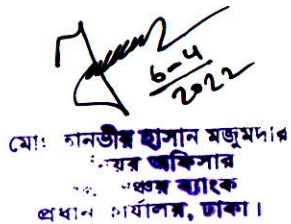 6-4
2022
মোঃ তানভীর হাসান মজুমদার
অফিসার
ব্যাংক
প্রধান কার্যালয়, ঢাকা।